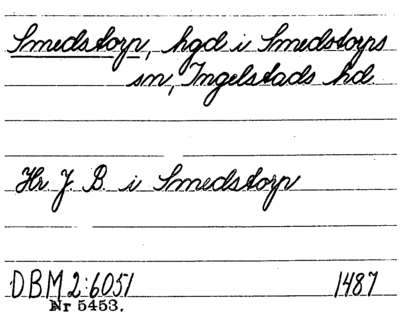 Smedstorp, hgd i Smedstorps
sn, Ingelstads hd.
Hr J. B. i Smedstorp
DBM 2:6051 1487
Nr 5453.